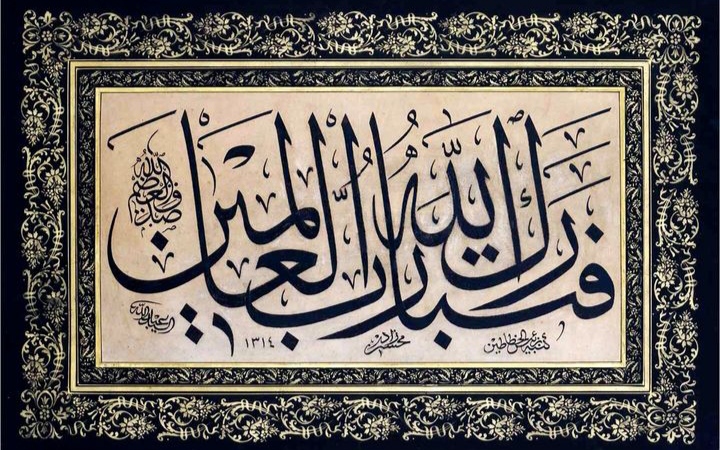 فتبارك الله رب العالمين
صدق الله العظيم
١٣١٤